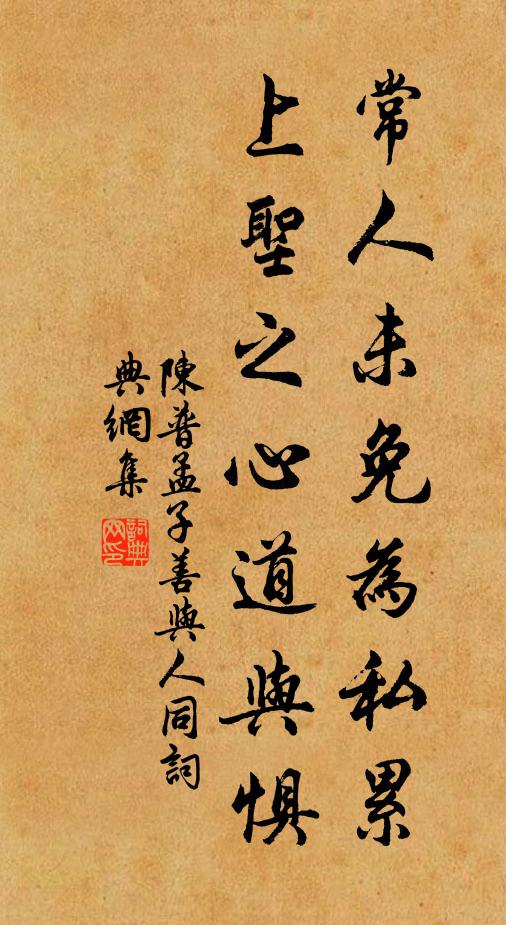 常人未免為私累
上聖之心道與懼
陳普孟子善與人同詞
典網集
詞典網印